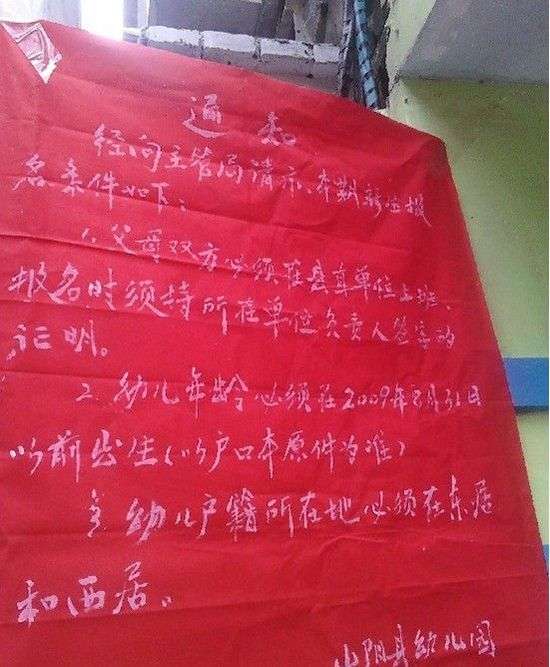 通知
经向主管局请示、本期新生报
名条件如下：
1、父母双方必须在县直单位上班、
报名时须持所在单位负责人签字的
证明。
2、幼儿年龄必须在2009年8月31日
以前出生(以户口本原件为准)
3、幼儿户籍所在地必须在东居
和西居。
山阳县幼儿园